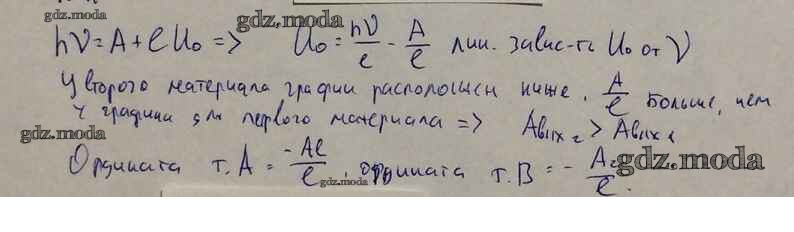 gdz.moda
gdz.moda
hν = A + e U₀ => U₀ = hν/e - A/e лин. завис-ть U₀ от ν
gdz.moda
У второго материала график расположен ниже, A/e больше, чем
у графика для первого материала => Aвых₂ > Aвых₁
gdz.moda
Ордината т. A = -Ae/e, ордината т. B = - A₂/e.
gdz.moda
gdz.moda